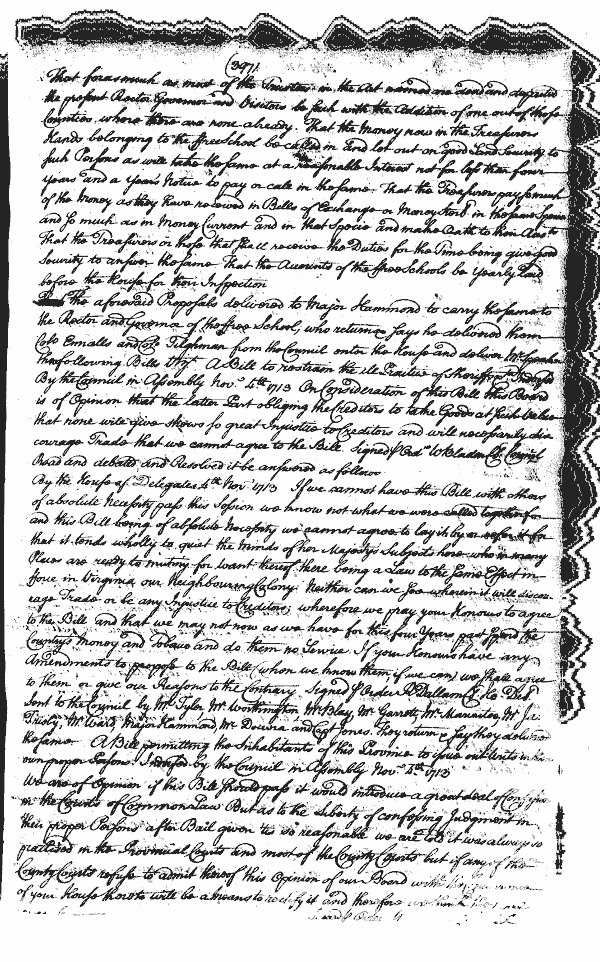 (397)
That forasmuch as most of the Trustees in the Act named are dead and departed
the present Rector Governor and Visitors be such with the Addition of one out of those
Counties where there are none already. That the Money now in the Treasurers
Hands belonging to the ffree School be called in and let out on good Land Security to
such Persons as will take the same at a reasonable Interest not for less than four
years and a Year's Notice to pay or call in the same. That the Treasurers pay so much
of the Money as they have received in Bills of Exchange or Money Sterl in the same Specie
and so much as in Money Current and in that Specie and make Oath to their Accts
That the Treasurers or those that shall receive the Duties for the Time being give good
Security to answer the same That the Accounts of the ffree Schools be Yearly Laid
before the House for their Inspection
The aforesaid Proposals delivered to Major Hammond to carry the same to
the Rector and Governors of the free School, who returns says he delivered them
Colo Ennalls and Colo Tilghman from the Council enter the House and deliver Mr Speaker
the following Bills Vizt. A Bill to restrain the ill Practice of Sheriffs Indorsed
By the Council in Assembly Nov. 4th 1713 On Consideration of this Bill this Board
is of Opinion that the latter Part obliging the Creditors to take Goods at such Value
that none will give shews so great Injustice to Creditors and will necessarily dis
courage Trade that we cannot agree to the Bill Signed p Ord. W Bladen Cl. Council
Read and debated and Resolved it be answered as follows
By the House of Delegates 4th Nov. 1713 If we cannot have this Bill with others
of absolute Necessity pass this Session we know not what we were called together for
and this Bill being of absolute Necessity we cannot agree to lay it by or refer it for
that it tends wholly to quiet the minds of her Majestys Subjects here who in many
Places are ready to mutiny for want thereof there being a Law to the same Effect in
force in Virginia our Neighbouring Colony Neither can we see wherein it will discou-
rage Trade or be any Injustice to Creditors, wherefore we pray your Honours to agree
to the Bill and that we may not now as we have for this four Years past spend the
Country's Money and Tobacco and do them no Service If your Honours have any
Amendments to propose to the Bill (when we know them if we can) we shall agree
to them or give our Reasons to the Contrary Signed p Order R Dallam Cl. Ho. Del
Sent to the Council by Mr Tyler Mr Worthington Mr Blay, Mr Garrett, Mr Mariartee, Mr
Mr Ward Major Hammond, Mr Downs and Capt Jones. They return & say they deliver'd
the same A Bill permitting the Inhabitants of this Province to Issue out Writs in their
own proper Persons. Indorsed by the Council in Assembly Nov. 4th 1713
We are of Opinion if this Bill should pass it would introduce a great deal of Confusion
in the Courts of Common Law But as to the Liberty of confessing Judgment in
their proper Persons after Bail given tis so reasonable we are told it was always so
practised in the Provincial Courts and most of the County Courts but if any of the
County Courts refuse to admit thereof this Opinion of our Board with the
of your House thereto will be a means to rectify it and therefore we think the